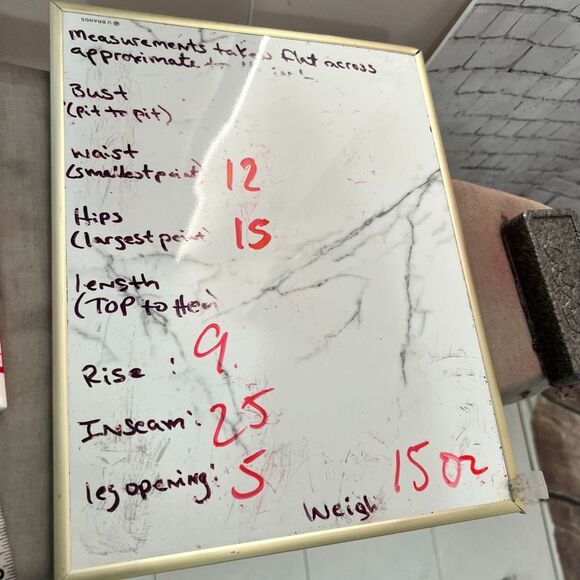 U BRANDS
Measurements taken flat across
approximate
Bust
(Pit to pit)
Waist
(smallest point) 12
Hips
(largest point) 15
length
(TOP to Hem)
Rise : 9.
Inseam: 25
leg opening: 5
Weigh 15 oz